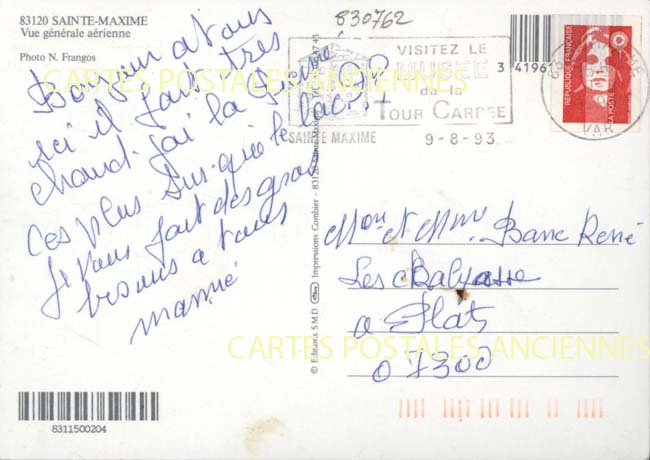 83120 SAINTE-MAXIME
Vue générale aérienne
Photo N. Frangos
830762
Bonjour a tous
ici il fait tres
chaud. j'ai la
Ces plus Sur. que le lac
Je vous fait des gros
bisous a tous
mamie
VISITEZ LE
MUSEE
de la
TOUR CARREE
SAINTE MAXIME 9-8-93
3 41961
RÉPUBLIQUE FRANÇAISE
LA POSTE
VAR
Mon et Mme Banc René
Les Balyasse
a Plats
07300
© Editions S.M.D. Impressions Combier - 83120
CARTES POSTALES ANCIENNES
CARTES POSTALES ANCIENNES
8311500204